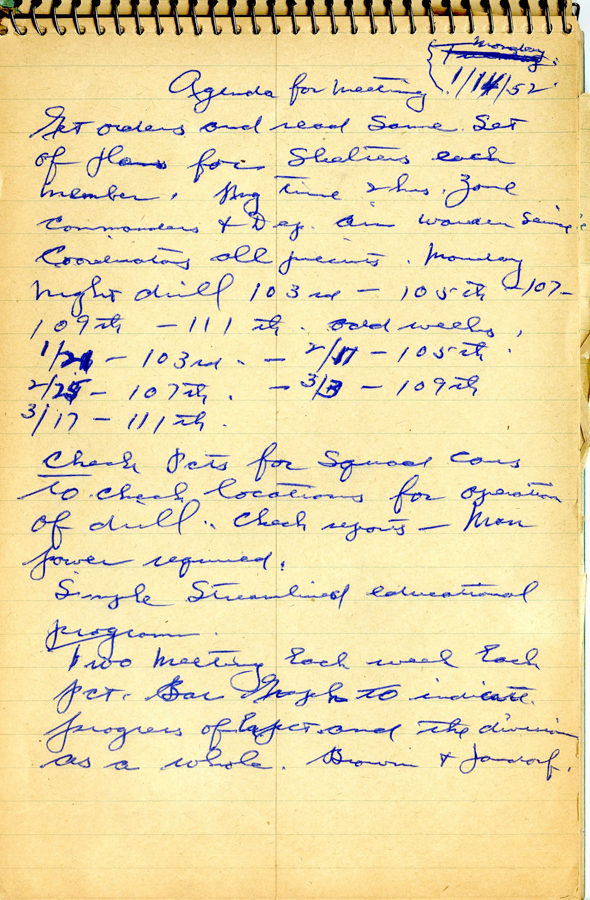 Monday
1/14/52
Agenda for Meeting
Get orders and read same. Set
of plans for Shelters each
member. Mtg time 2 hrs. Zone
Commanders & Dep. air warden Service
Coordinators all precincts. Monday
night drill 103rd - 105th - 107 -
109th - 111th. odd weeks,
1/21 - 103rd. - 2/11 - 105th.
2/25 - 107th. - 3/3 - 109th
3/17 - 111th.
Check Pcts for Squad cars
to check locations for operation
of drill. Check reports - Man
power required.
Simple Streamlined educational
program.
Two Meeting Each week Each
pct. Bar Graph to indicate
progress of pct. and the division
as a whole. Browin & Jandorf.